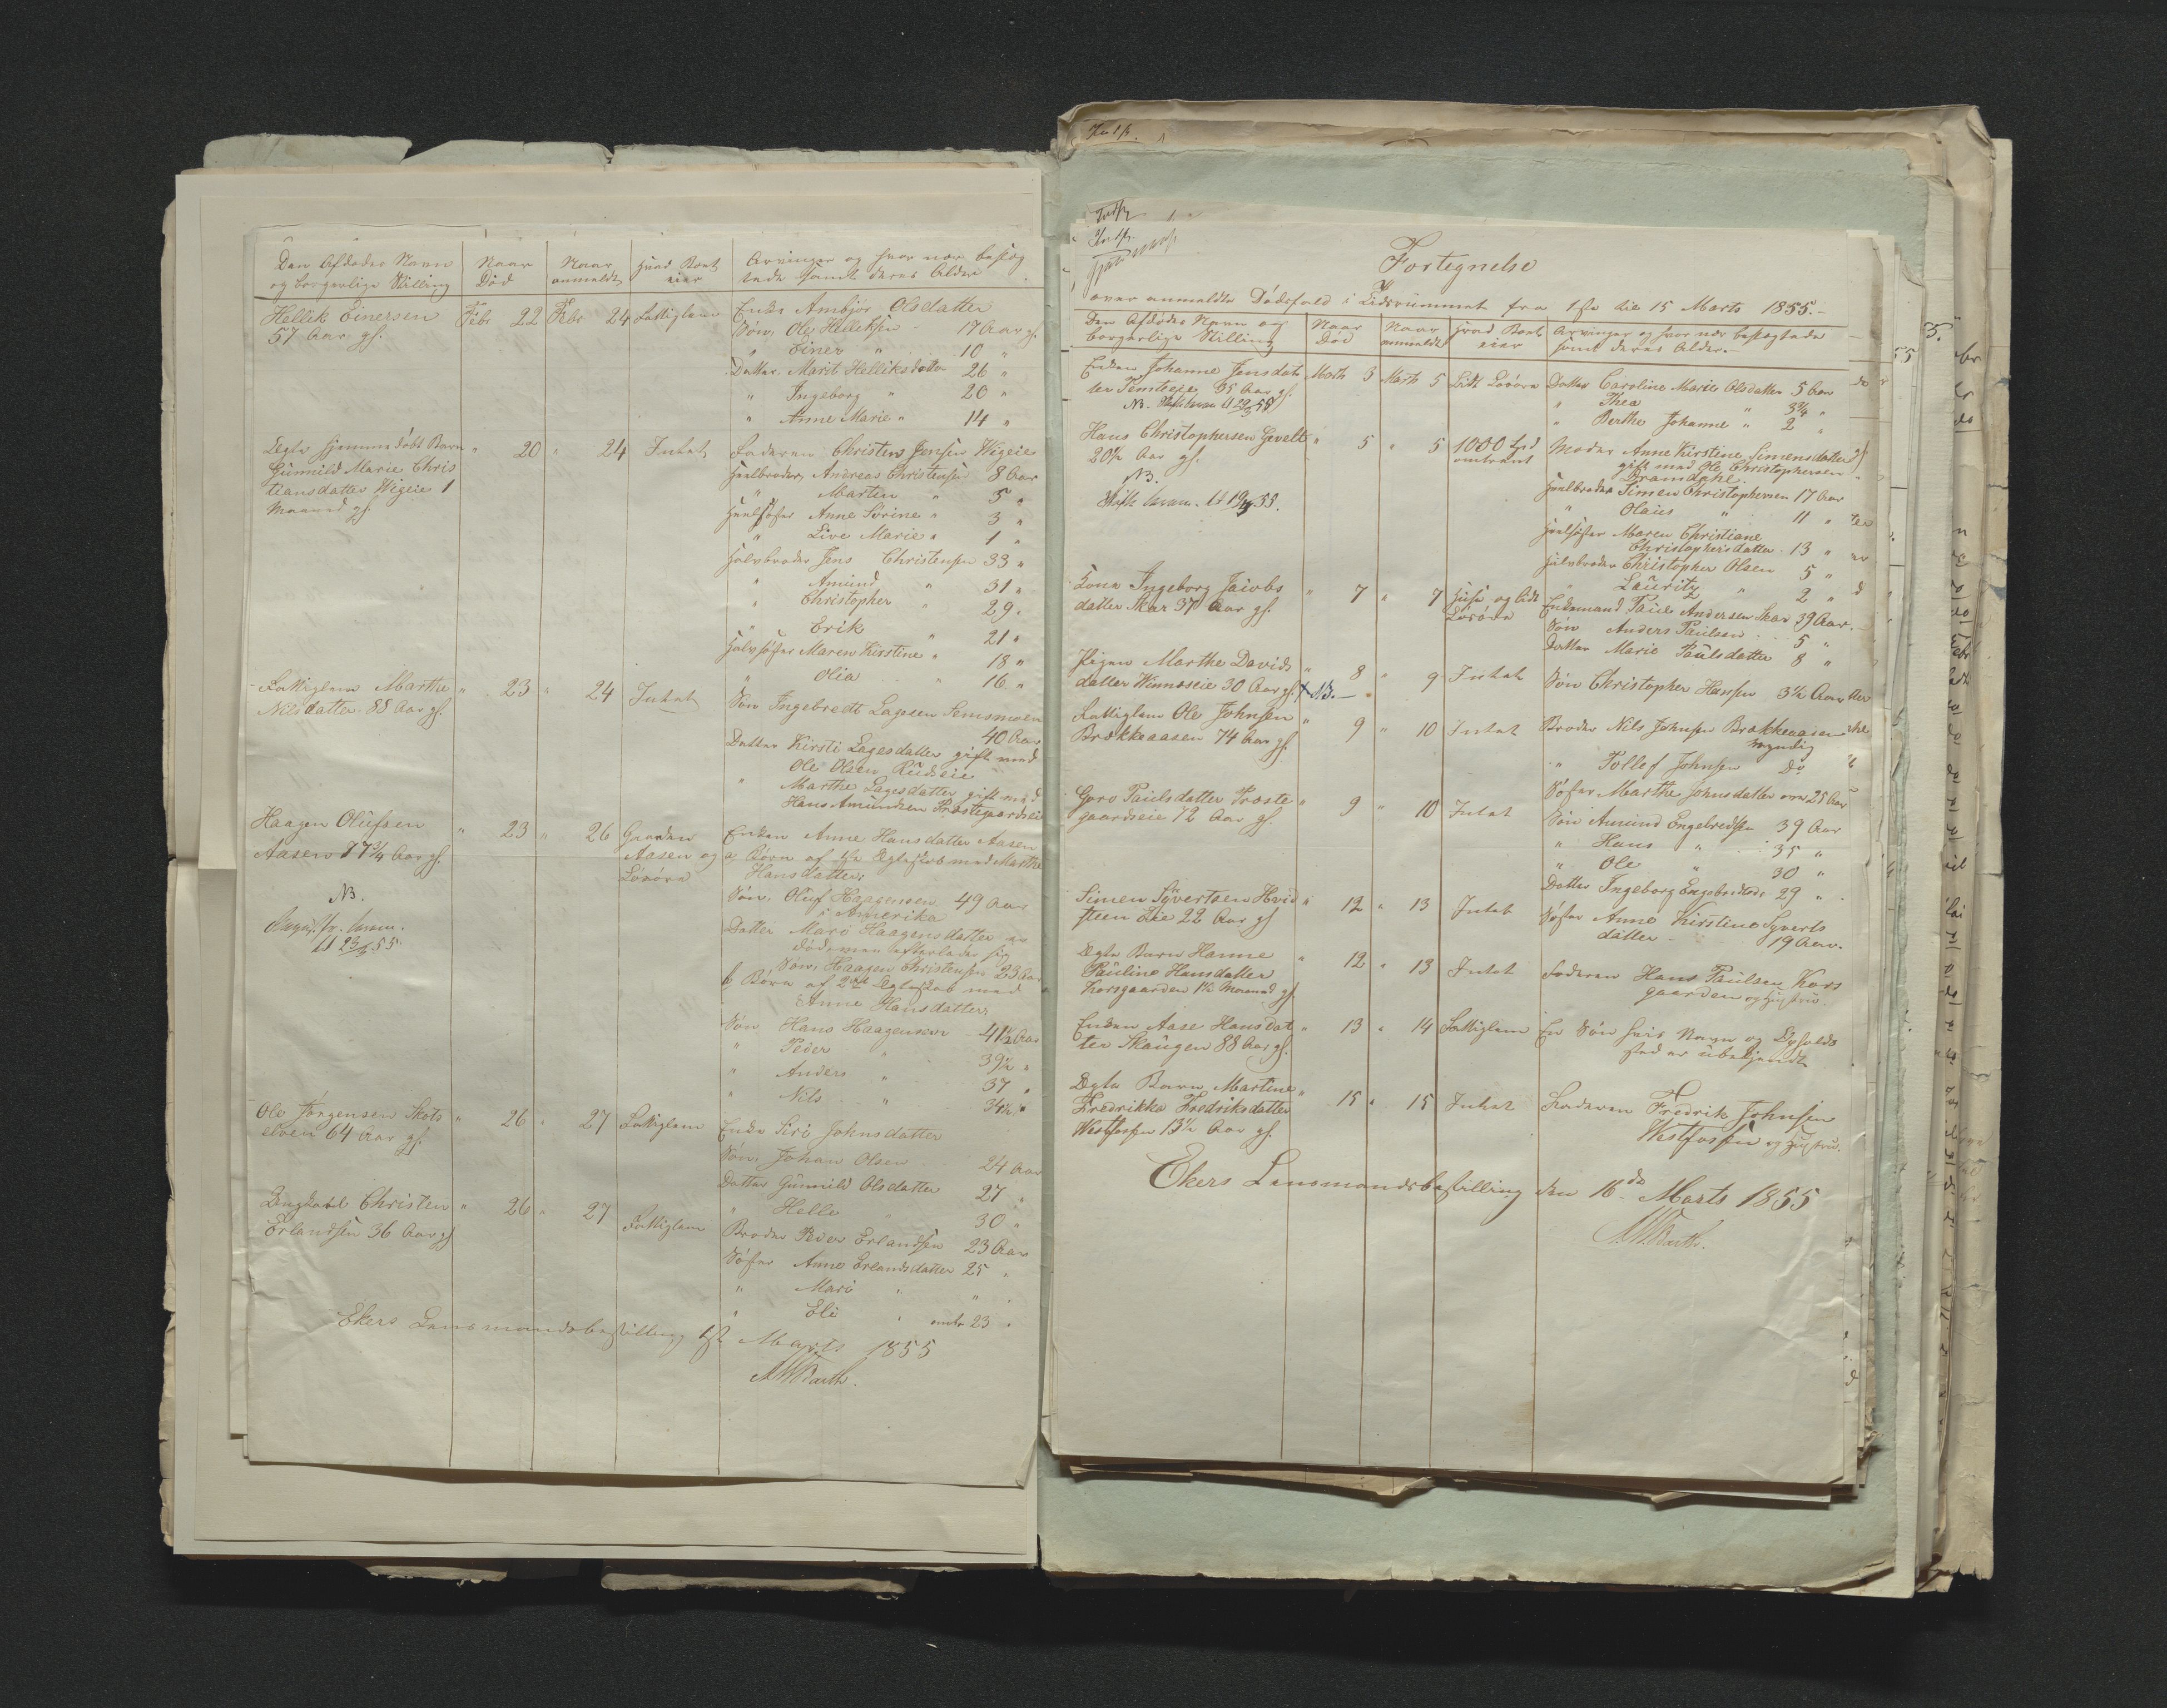 Den Afdødes Navn
og borgerlige Stilling
Naar
Død
Naar
anmeldt
Hvad Boet
eier
Arvinger og hvor nær beslæg
tede samt deres Alder
Hellik Einersen
57 Aar gl.
Febr 22 Febr 24 Fattiglem
Enke Ambjør Olsdatter
Søn, Ole Helliksen 17 Aar gl.
" Einer " 10 "
Datter Marit Helliksdatter 26 "
" Ingeborg " 20 "
" Anne Marie " 14 "
Ægte hjemmedøbt Barn
Gunnild Marie Chris
tiansdatter Wigeie 1
Maaned gl.
" 20 " 24 Intet
Faderen Christen Jensen Wigeie
Heelbroder Andreas Christensen 8 Aar
" Marten " 5 "
Heelsøster Anne Sørine " 3 "
" Live Marie " 1 "
Halvbroder Jens Christensen 33 "
" Amund " 31 "
" Christopher " 29 "
" Erik " 21 "
Halvsøster Maren Kirstine " 18 "
" Olia " 16 "
Fattiglem Marthe
Nilsdatter 88 Aar gl.
" 23 " 24 Intet
Søn Ingebredt Lagesen Semsmoen
40 Aar
Datter Kirsti Lagesdatter gift med
Ole Olsen Rudseie
" Marthe Lagesdatter gift med
Hans Amundsen Præstegaardseie
Haagen Olufsen
Aasen 77¾ Aar gl.
NB.
11 23/3 55.
" 23 " 26 Gaarden
Aasen og
Løsøre
Enken Anne Hansdatter Aasen
a, Børn af 1ste Ægteskab med Marthe
Hansdatter:
Søn, Oluf Haagensen 49 Aar
i Amerika
Datter Mari Haagensdatter er
død men efterlader sig
Søn, Haagen Christensen 23 Aar
b, Børn af 2det Ægteskab med
Anne Hansdatter:
Søn Hans Haagensen 41½ Aar
" Peder " 39½ "
" Anders " 37 "
" Nils " 34½ "
Ole Jørgensen Skots
elven 64 Aar gl.
" 26 " 27 Fattiglem
Enke Siri Johnsdatter
Søn, Johan Olsen 24 Aar
Datter Gunnild Olsdatter 27 "
" Helle " 30 "
Ungkarl Christen
Erlandsen 36 Aar gl
" 26 " 27 Fattiglem
Broder Peder Erlandsen 23 Aar
Søster Anne Erlandsdatter 25 "
" Mari " " "
" Eli " omtr 23 "
Ekers Lensmandsbestilling 1ste Marts 1855
AWBarth.
Fortegnelse
over anmeldte Dødsfald i Tidsrummet fra 1ste til 15 Marts 1855.-
Den Afdødes Navn og
borgerlige Stilling
Naar
Død
Naar
anmeldt
Hvad Boet
eier
Arvinger og hvor nær beslægtede
samt deres Alder.-
Enken Johanne Jensdat
ter Temteeie 35 Aar gl.
NB.
Marts 3 Marts 5 Lidt Løsøre
Datter Caroline Marie Olsdatter 5 Aar
" Thea " 3¾ "
" Berthe Johanne " 2 "
Hans Christophersen Gevelt
20½ Aar gl.
NB.
" 5 " 5 1000 Spd
omtrent
Moder Anne Kirstine Simensdatter
gift med Ole Christophersen
Bramdahl.
Heelbroder Simen Christophersen 17 Aar
" Olaus " 11 "
Heelsøster Maren Christiane
Christophersdatter 13 "
Halvbroder Christopher Olsen 5 "
" Lauritz " 2 "
Kone Ingeborg Jacobs
datter Skar 37 Aar gl.
" 7 " 7 Huse og lidt
Løsøre
Enkemand Paul Andersen Skar 39 Aar.
Søn Anders Paulsen 5 "
Datter Marie Paulsdatter 8 "
Pigen Marthe Davids
datter Winnæseie 30 Aar gl. NB.
" 8 " 9 Intet
Søn Christopher Hansen 3½ Aar
Fattiglem Ole Johnsen
Brækkeaasen 74 Aar gl.
" 9 " 10 Intet
Broder Nils Johnsen Brækkeaasen
myndig
" Tollef Johnsen Do
Søster Marthe Johnsdatter over 25 Aar
Goro Paulsdatter Præste
gaardseie 72 Aar gl.
" 9 " 10 Intet
Søn Amund Engebredtsen 39 Aar
" Hans " 35 "
" Ole " 30 "
Datter Ingeborg Engebredtsdr 29 "
Simen Syvertsen Hvid
steen Eie 22 Aar gl
" 12 " 13 Intet
Søster Anne Kirstine Syverts
datter 19 Aar.
Ægte Barn Hanne
Pauline Hansdatter
Korsgaarden 1½ Maaned gl.
" 12 " 13 Intet
Faderen Hans Paulsen Kors
gaarden og Hustru.
Enken Aase Hansdat
ter Skaugen 88 Aar gl.
" 13 " 14 Fattiglem
En Søn hvis Navn og Opholds
sted er ubekjendt
Ægte Barn Martine
Fredrikke Fredriksdatter
Westfossen 13½ Aar gl.
" 15 " 15 Intet
Faderen Fredrik Johnsen
Westfossen og Hustru.
Ekers Lensmandsbestilling den 16de Marts 1855
AWBarth.